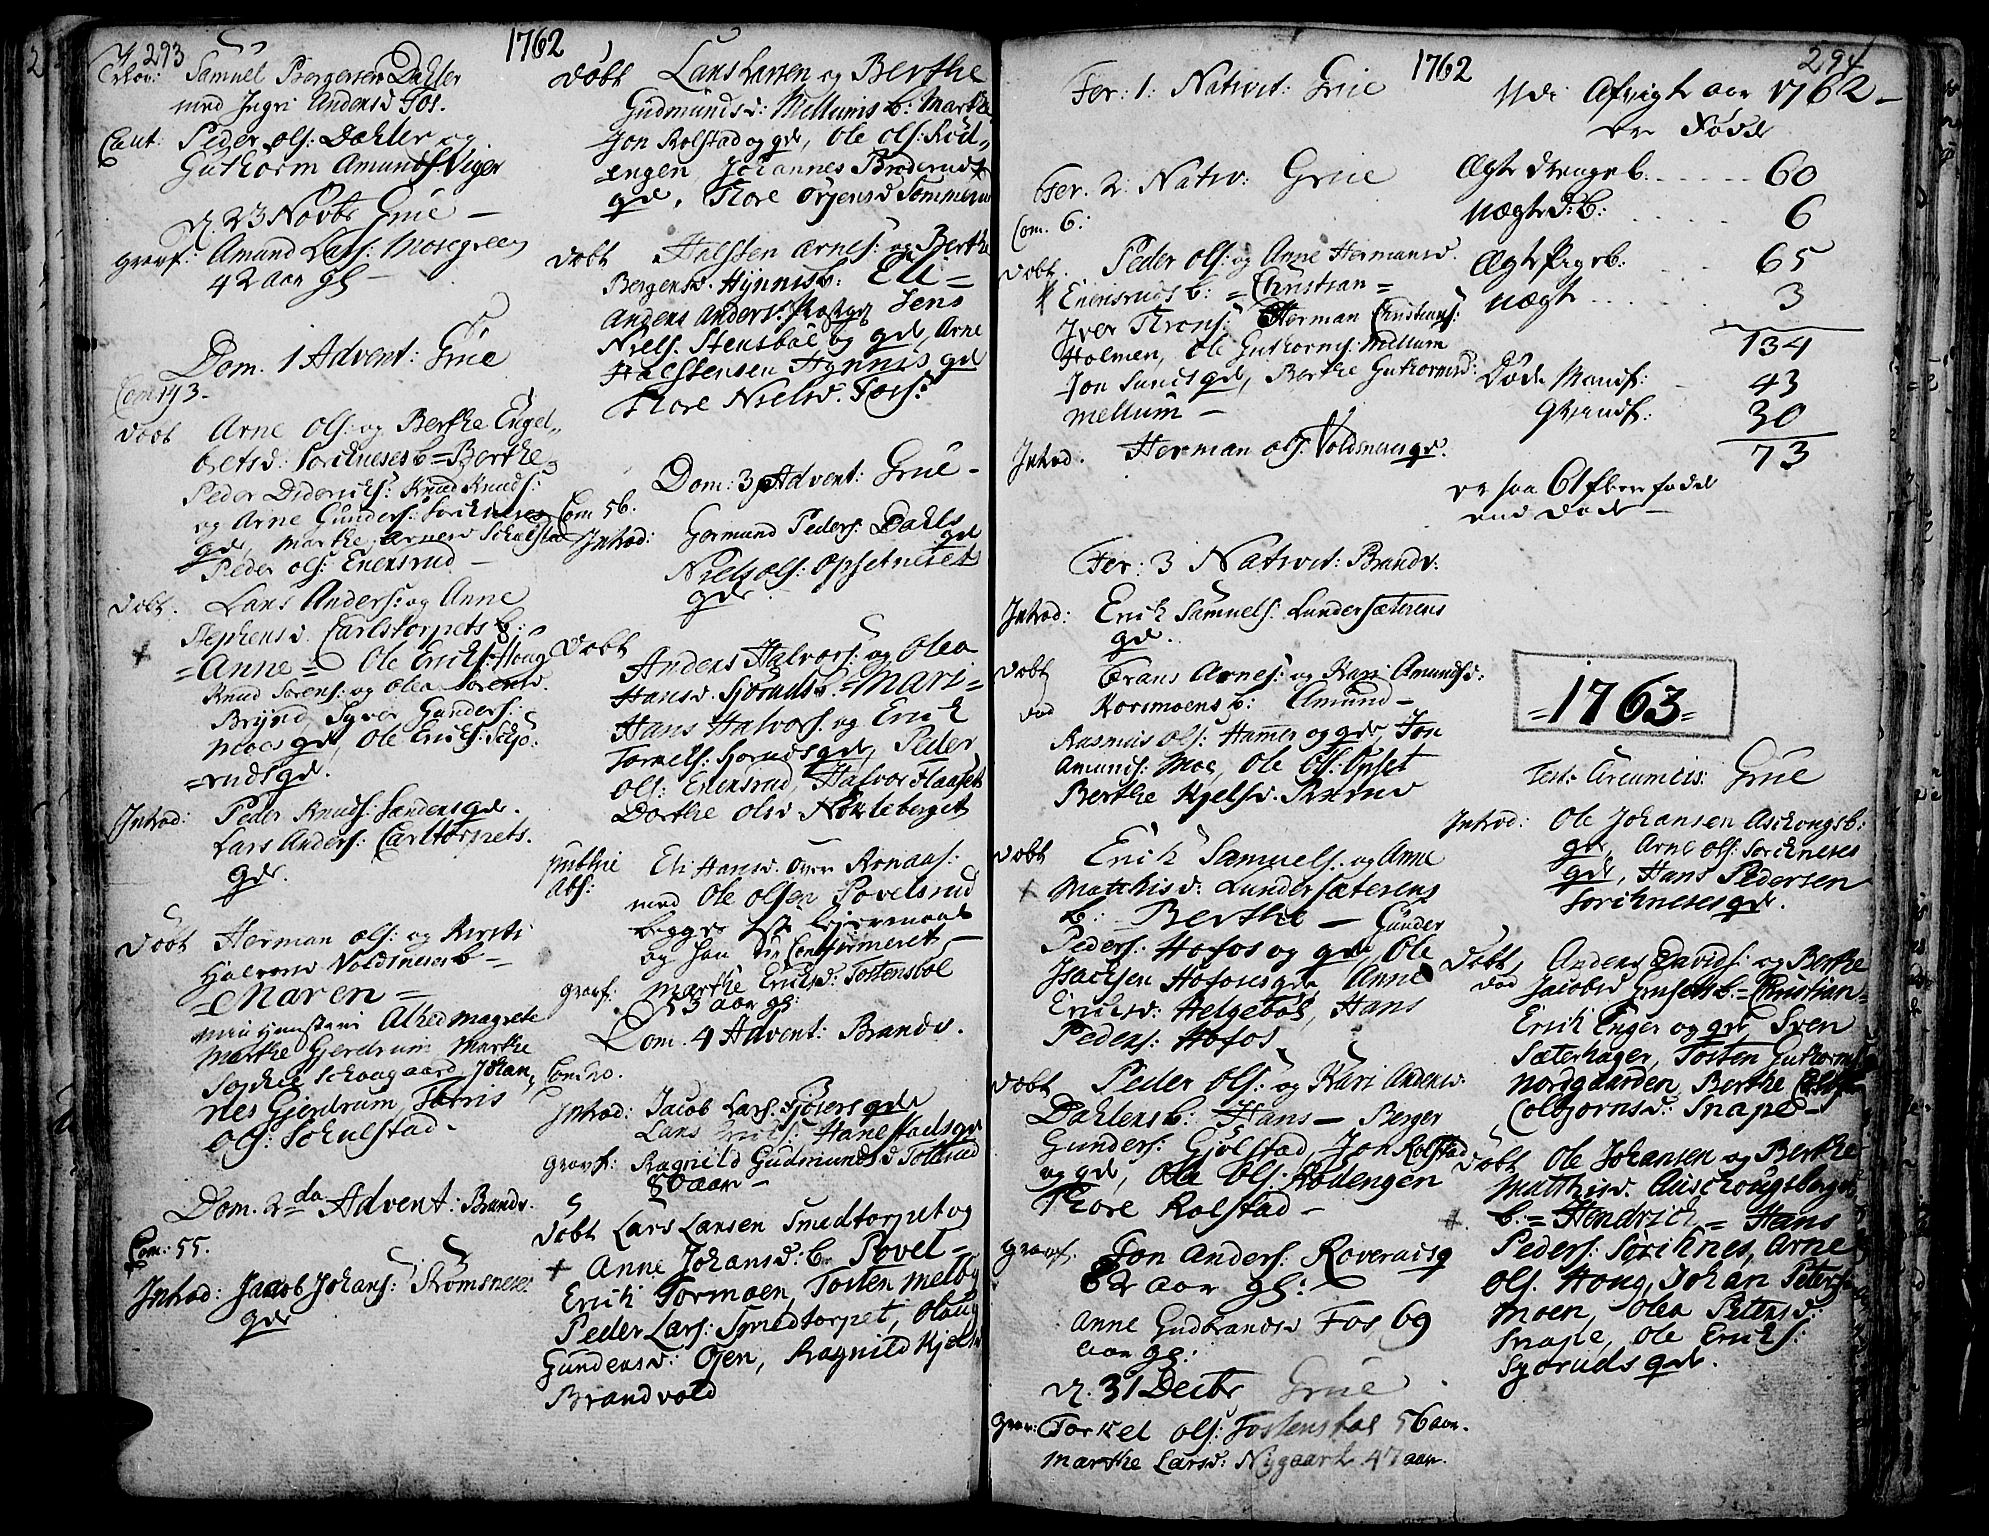 293
1762
Trolov: Samuel Bergersen Dahler
med Ingri Andersd Fos.
Caut: Peder Ols: Dahler og
Guthorm Amunds: Viger
d. 23 Novbr Grue —
Gravf: Amund Lars: Mosegreen
42 aar gl —
Dom. 1 Advent: Grue
Com 193.
Døbt Arne Ols: og Berthe Engel„
bretsd: Soriknesesb = Berthe =
Peder Diderichs: Knud Knuds:
og Arne Gunders: Soricknes
gde, Marthe Arnesd Schulstad
Peder Ols: Enensrud —
Døbt. Lars Anders: og Anne
Stephensd. Carlstorpets b:
= Anne = Ole Erichs: Houg
Knud Sørens: og Olea Sørensd.
Brynd Syver Gunders:
Moes gde, Ole Erichs: Schjø:
=ruds gde.
Introd: Peder Knuds: Sanders gde.
Lars Anders: Carlstorpets.
gde.
Døbt Herman Ols: og Kirsti
Halvorsd Voldmoens b —
= Maren =
Alhed Magrete
Marthe Gjerdrum Marthe
Sophie Schougaard, Johan„
nes Gjerdrum Torris
Ols: Schulstad.
Dom. 2da Advent: Brandv.
Com: 55.
Introd: Jacob Johans: Strømsneses
gde
Døbt Lars Larsen og Berthe
Gudmundsd: Mellums b: Marthe
Jon Rolstad og gde, Ole Ols: Rød„
=engen, Johannes Broderud
gde, Thore Ørjensd Sommerud
Døbt Halsten Arnes: og Berthe
Bergersd. Hynnis b: Eli =
Anders Anders: Jens
Niels: Stensbøl og gde, Arne
Halstensen Hynnis gde
Thore Nielsd. Fos:
Dom: 3 Advent: Grue —
Com 56.
Introd: Gormund Peders: Dahls
gde
Niels Ols: Opsetneset
gde
Døbt
Anders Halvors: og Olea
Hansd. Sjøruds b. = Mari =
Hans Halvors: og Erich
Tormels: Sjoruds gde, Peder
Ols: Enensrud, Halvor Haaset
Dorthe Olsd Nokleberget
Publice Eli Hansd. Over Aonaas:
Abs: med Ole Olsen Povelsrud
begges 1ste Lejermaal
og han er Confirmeret —
Gravf: Marthe Erichsd: Tostensbøl
73 aar gl:
Dom. 4 Advent: Brandv.
Com: 20.
Introd: Jacob Lars: Fjosers gde
Lars Erichs: Hanestads gde
Gravf: Ragnild Gudmundsd Tollerud
80 aar —
Døbt Lars Larsen Smedtorpet og
+ Anne Johansd: b. Povel =
Erich Tormoen, Tosten Melby
Peder Lars: Smedtorpet, Oloug
Gundersd: Ojen, Ragnild Kjelsd
Brandvold
1762
294
Fer: 1: Nativit: Grue
Fer. 2. Nativ: Grue
Com. 6:
Døbt. Peder Ols: og Anne Hermansd.
Enensruds b: = Christian =
Iver Throns: Herman Christians:
Holmen, Ole Guthorms: Mellum
Jon Sunds gde, Berthe Guthormsd:
Mellum —
Introd. Herman Ols: Voldmoens gde.
Fer: 3 Nativit: Brandv:
Introd: Erich Samuels: Lundersæterens
gde.
Døbt Frans Arnes: og Kari Amundsd:
død Korsmoens b: Amund —
Rasmus Ols: Hamer og gde, Jon
Amunds: Moe, Ole Ols: Opset
Berthe Kjelsd.
Døbt Erich Samuels: og Anne
+ Matthisd: Lundersæterens
b: Berthe — Gunder
Peders: Hofos og gde, Ole
Isachsen Hofoses gde, Anne
Erichsd: Helgebøl, Hans
Peders: Hofos
Døbt Peder Ols: og Kari Andersd.
Dahlens b: Hans — Berger
Gunders: Gjølstad, Jon Rolstad
og gde, Ola Ols: Rødengen
Thore Rolstad —
Gravf. Jon Anders: Roverud
82 aar gl:
Anne Gudbrandsd Fos 69
aar gl:
d. 31 Decbr Grue
Grav: Torkel Ols: Tostensbøl 56 aar.
Marthe Larsd: Nygaard 47 aar.
Udi Afvigte aar 1762 —
er Fødde
Ægte drenge b. . . . 60
Uægte d: b: . . . . 6
Ægte Pige b: . . . 65
Uægte . . . . . 3
134
Døde Mandk: . 43
Qvindk: 30
73
er saa 61 flere fødde
end døde —
= 1763 =
Fest: Circumcis: Grue
Introd: Ole Johansen Aschougsb:
gde, Arne Ols: Sorickneses
gde, Hans Pedersen
Sorickneses gde.
Døbt, Anders Davids: og Berthe
død Jacobsd b: = Christian =
Erich Enger og gde, Sven
Sæterhager, Tosten Guthorms:
Nordgaarden, Berthe
Colbjornsd: Snapde —
Døbt Ole Johansen og Berthe
Matthisd. Auschougsberget
b: = Hendrich = Hans
Peders: Soricknes, Arne
Ols: Houg, Johan Peters:
Moen, Olea Petersd:
Snaple, Ole Erichs:
Sjoruds gde.